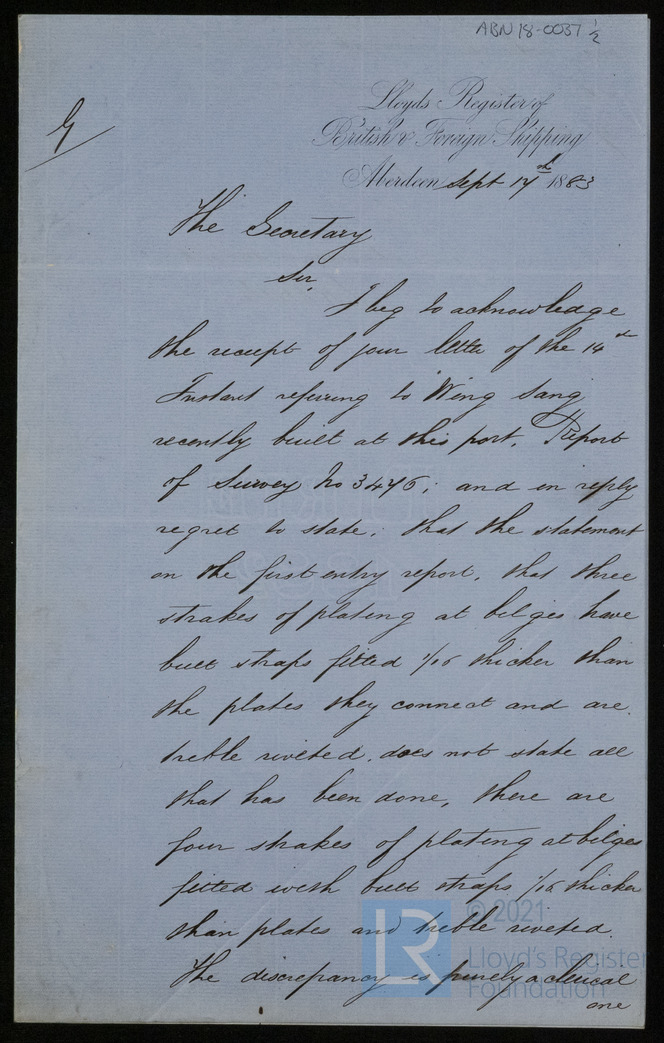 ABN 18-0037 1/2
Lloyds Register of
British & Foreign Shipping
Aberdeen Sept 17th 1883
The Secretary
Sir,
I beg to acknowledge
the receipt of your letter of the 14th
Instant referring to "Wing Sang
recently built at this port, Report
of Survey No 3476; and in reply
regret to state; that the statement
on the first entry report, that three
strakes of plating at bilges have
butt straps fitted 1/16 thicker than
the plates they connect and are
treble riveted, does not state all
that has been done, there are
four strakes of plating at bilges
fitted with butt straps 1/16 thicker
than plates and treble riveted.
The discrepancy is purely a clerical
one
LR
© 2021
Lloyd's Register
Foundation